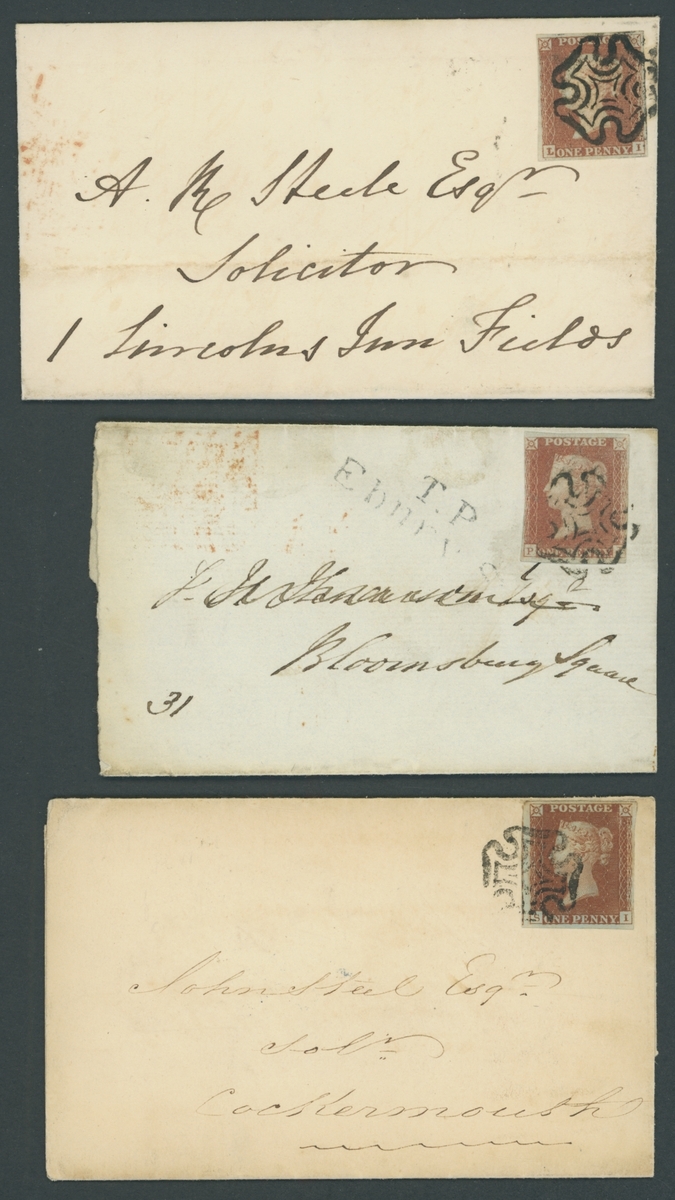 POSTAGE
L ONE PENNY I
A. R Steele Esqr
Solicitor
1 Lincolns Inn Fields
POSTAGE
P
T.P
Ebury S
Esqre
Bloomsbury Square
31
POSTAGE
S ONE PENNY I
John Steel Esqr
Solr
Cockermouth